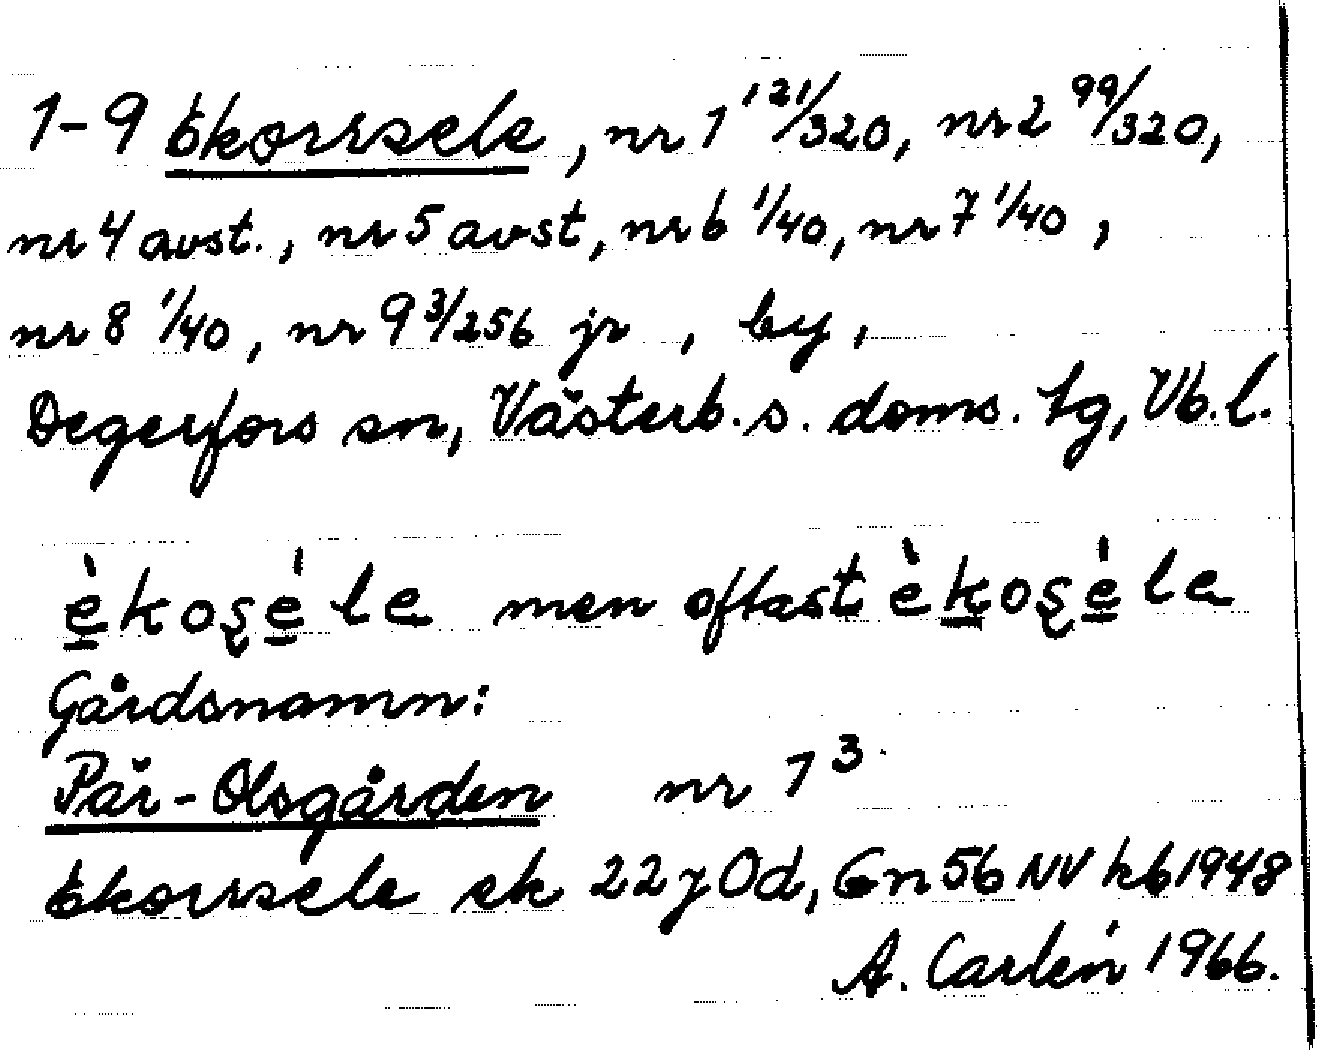 1-9 Ekorrsele, nr 1 121/320, nr 2 99/320,
nr 4 avst., nr 5 avst, nr 6 1/40, nr 7 1/40,
nr 8 1/40, nr 9 3/256 jr, by,
Degerfors sn, Västerb. s. doms. lg, Vb. l.
è̱koʂé̱le men oftast èḵoʂé̱le
Gårdsnamn:
Pär-Olsgården nr 1³
Ekorrsele ek 22 j 0d, Gn 56 NV kb 1948
A. Carlén 1966.